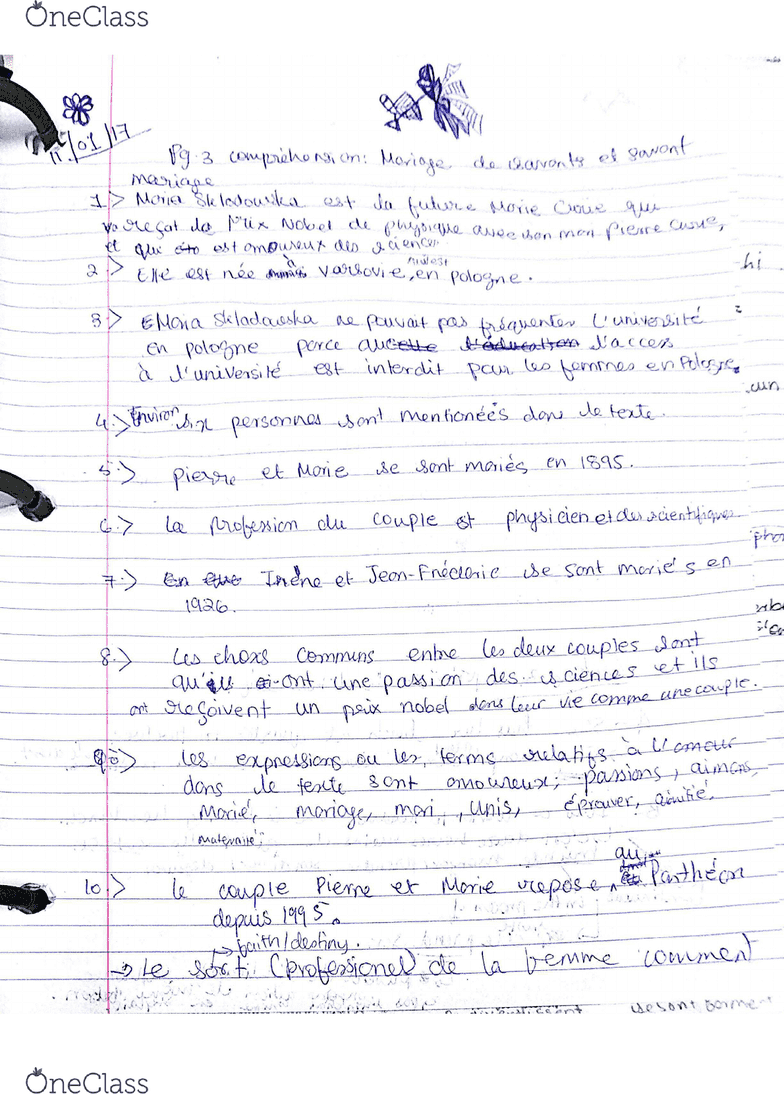 OneClass
11/01/17
Pg.3 compréhension: Mariage de savants et savant
mariage
1> Maria Skladowska est la future Marie Curie qui
va reçat le Prix Nobel de physique avec son mari Pierre Curie,
et qui est amoureux des sciences
2> Elle est née à varsovie, en pologne.
hi
3> Maria Skladowska ne pouvait pas fréquenter l'université
en pologne parce l'acces
à l'université est interdit pour les femmes en Pologne.
un
4> Environ six personnes sont mentionées dans le texte.
5> pierre et Marie se sont mariés en 1895.
6> la profession du couple est physicien et des scientifiques
7> Irène et Jean-Fréderic se sont mariés en
1926.
8> les choxs communs entre les deux couples sont
qu'ils ont une passion des sciences et ils
ont reçoivent un prix nobel dans leur vie comme une couple.
9> les expressions ou les terms relatifs à l'amour
dans le texte sont amoureux; passions, aimons,
Marié, mariage, mari, unis, éprouver, amitié,
maternité;
10> le couple Pierre et Marie repose au Parthéon
depuis 1995.
faith/destiny.
→ Le sort: (professionel) de la femme comment
se sont
OneClass